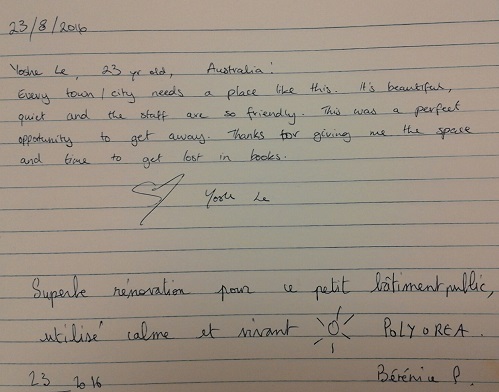 23/8/2016
Yoshe Le, 23 yr old, Australia!
Every town/city needs a place like this. It's beautiful,
quiet and the staff are so friendly. This was a perfect
opportunity to get away. Thanks for giving me the space
and time to get lost in books.
Le
Superbe rénovation pour ce petit bâtiment public,
utilisé calme et vivant POLYOREA.
23 2016
Bérénice P.